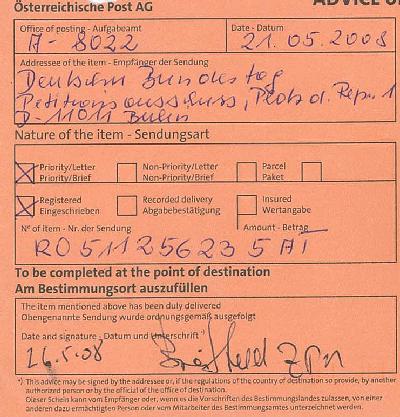 Österreichische Post AG
Office of posting - Aufgabeamt
Date - Datum
A - 8022
21.05.2008
Addressee of the item - Empfänger der Sendung
Deutscher Bundestag
Petitionsausschuss, Platz d. Repu. 1
D-11011 Berlin
Nature of the item - Sendungsart
Priority/Letter
Priority/Brief
Non-Priority/Letter
Non-Priority/Brief
Parcel
Paket
Registered
Eingeschrieben
Recorded delivery
Abgabebestätigung
Insured
Wertangabe
Nº of item - Nr. der Sendung
Amount - Betrag
RO 511256235 AT
To be completed at the point of destination
Am Bestimmungsort auszufüllen
The item mentioned above has been duly delivered
Obengenannte Sendung wurde ordnungsgemäß ausgefolgt
Date and signature - Datum und Unterschrift *)
26.5.08
*) This advice may be signed by the addressee or, if the regulations of the country of destination so provide, by another
authorized person or by the official of the office of destination.
Dieser Schein kann vom Empfänger oder, wenn es die Vorschriften des Bestimmungslandes zulassen, von einer
anderen dazu ermächtigten Person oder vom Mitarbeiter des Bestimmungsamtes unterzeichnet werden.